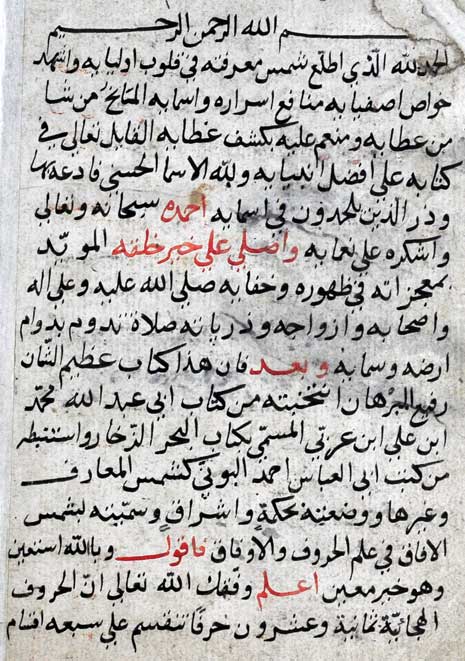 بسم الله الرحمن الرحيم
الحمد لله الذي اطلع شمس معرفته في قلوب اوليايه واشهد
خواص اصفيايه منافع اسراره واسمايه المانح من شا
من عطايه ومنعم عليه بكشف غطايه القايل تعالى في
كتابه على افضل انبيايه ولله الاسما الحسنى فادعوه بها
وذر الذين يلحدون في اسمايه احمده سبحانه وتعالى
واشكره على نعمايه واصلي على خير خلقه المويد
بمعجزاته في ظهوره وخفايه صلى الله عليه وعلى اله
واصحابه وازواجه وذرياته صلاة تدوم بدوام
ارضه وسمايه وبعد فان هذا كتاب عظيم الشان
رفيع البرهان انتخبته من كتاب ابي عبد الله محمد
ابن علي ابن عربي المسمى بكتاب البحر الزخار واستنبطه
من كتب ابي العباس احمد البوني كشمس المعارف
وغيرها ووضعته بحكمة واشراق وسميته بشمس
الافاق في علم الحروف والاوفاق فاقول وبالله استعين
وهو خير معين اعلم وفقك الله تعالى ان الحروف
الهجائية ثمانية وعشرون حرفا تنقسم على سبعه اقسام